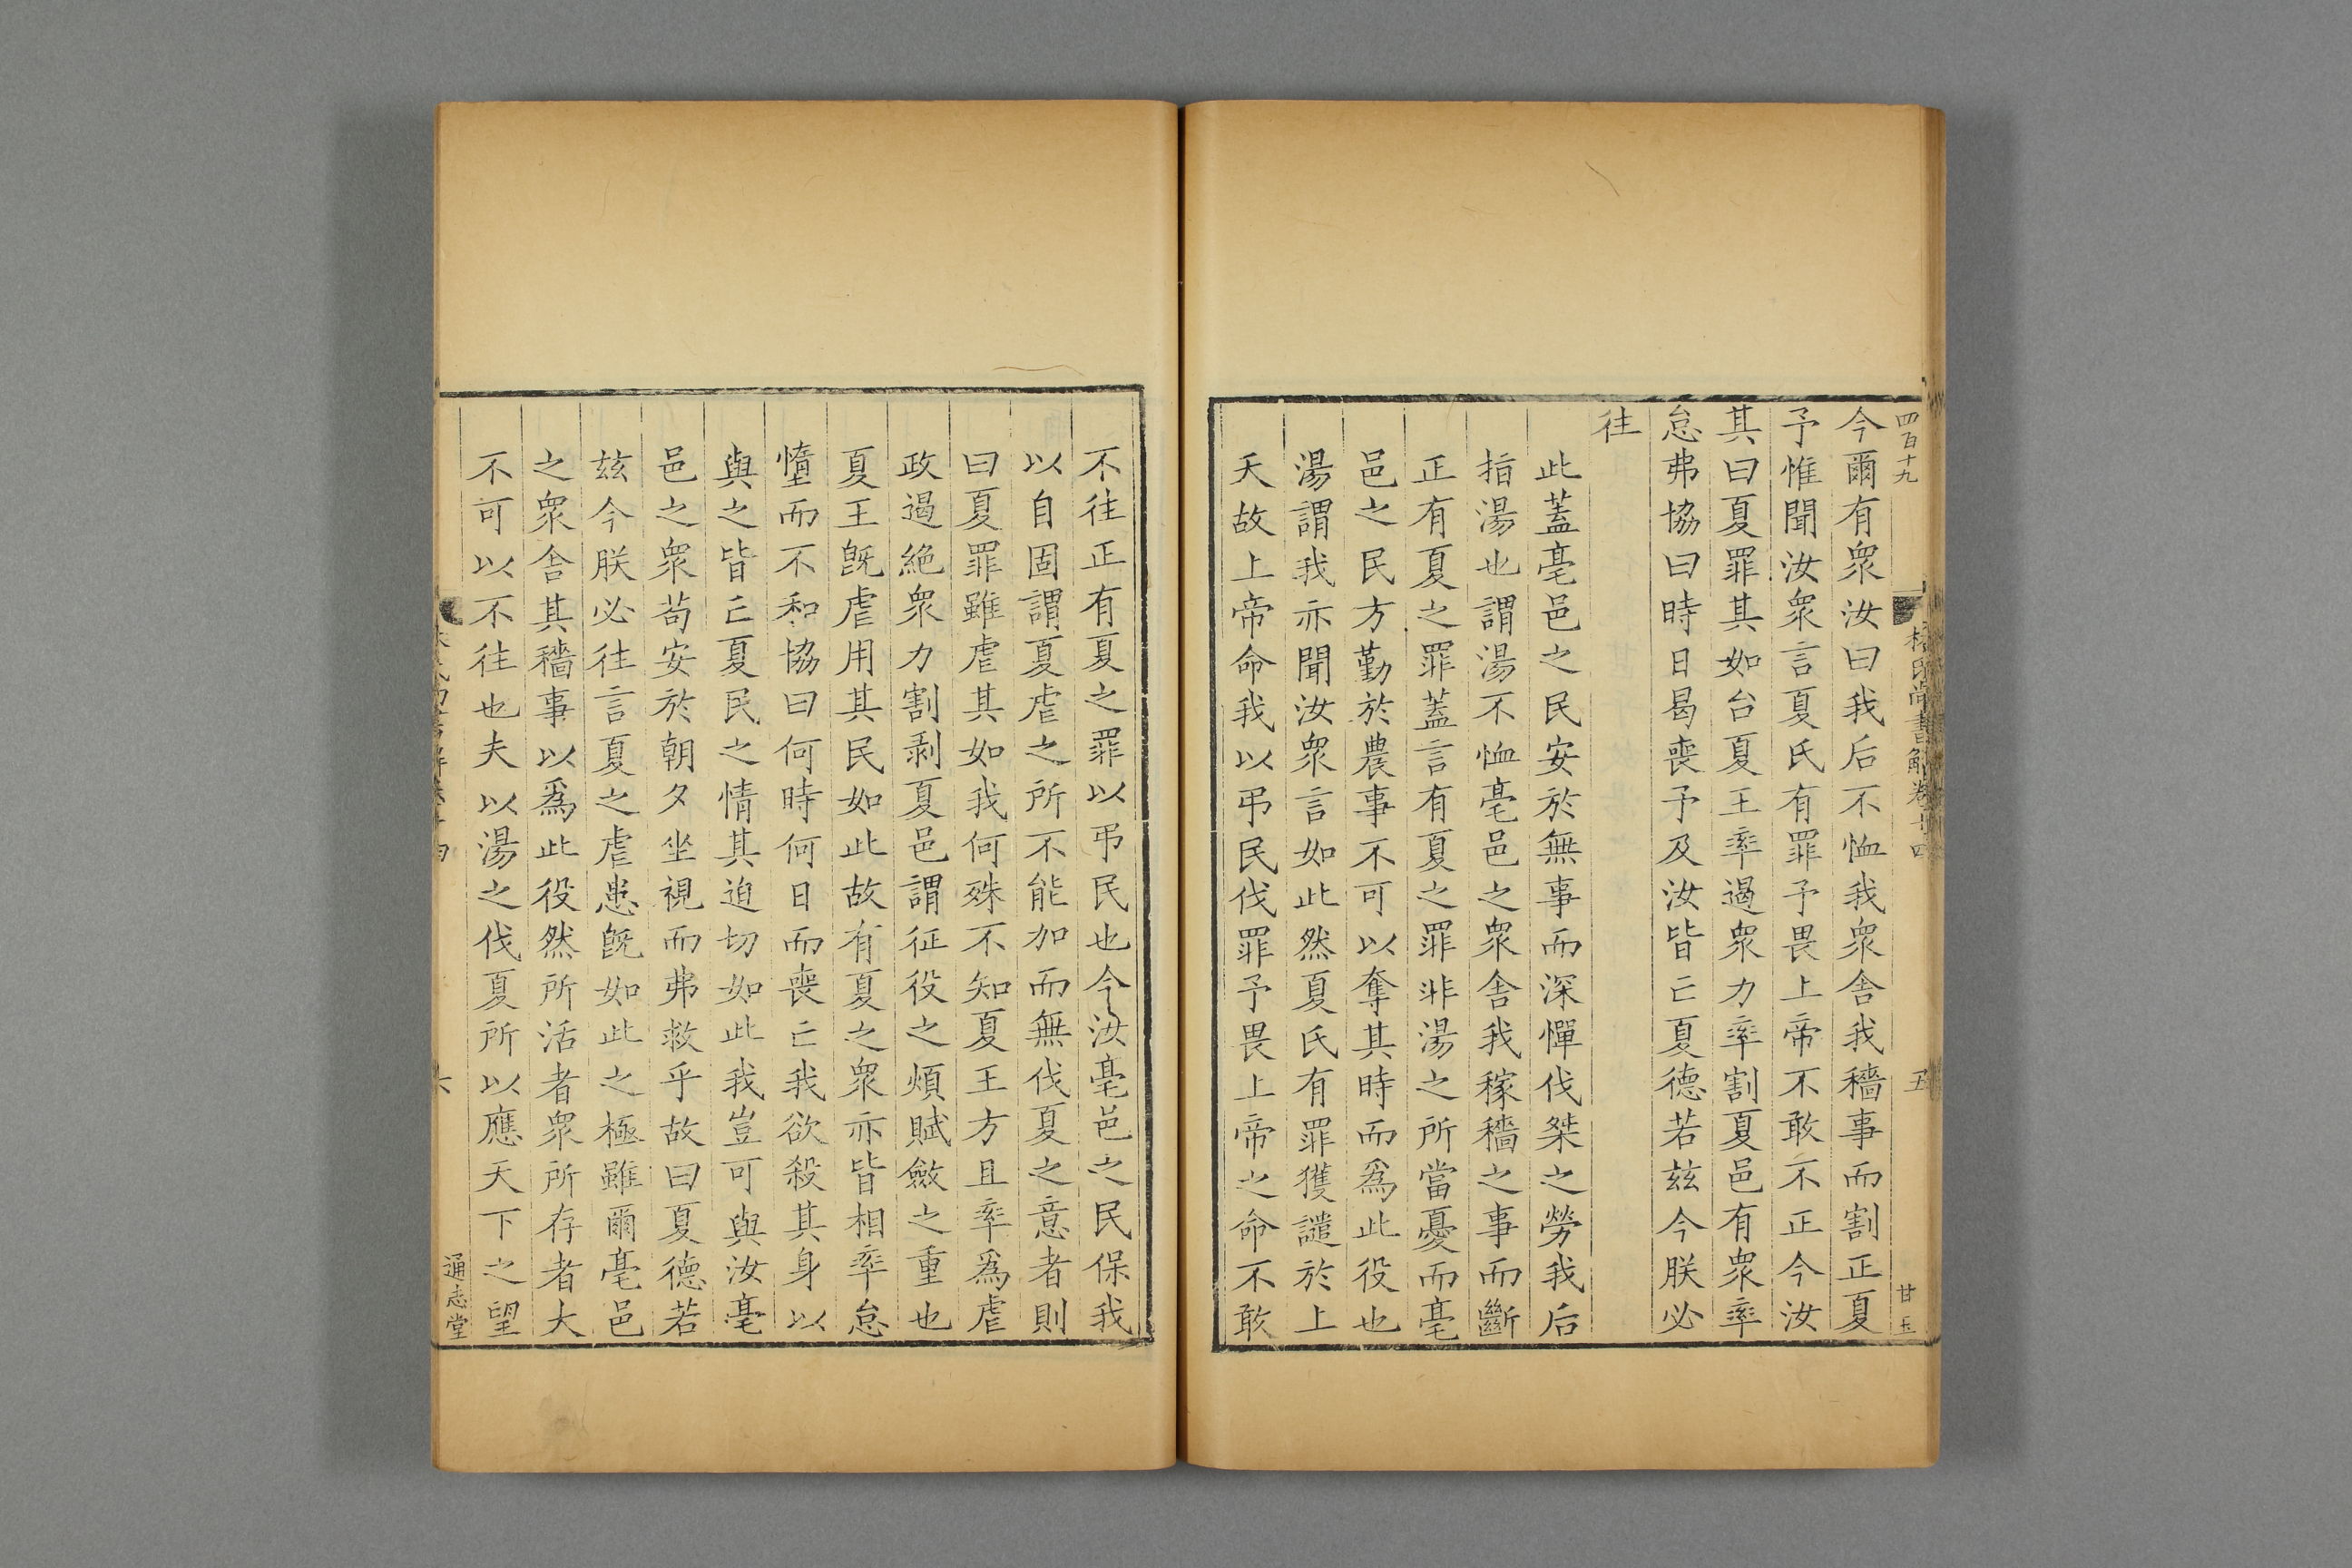 四百十九
林氏尚書解卷十四
五
甘玉
今爾有衆汝曰我后不恤我衆舍我穡事而割正夏
予惟聞汝衆言夏氏有罪予畏上帝不敢不正今汝
其曰夏罪其如台夏王率遏衆力率割夏邑有衆率
怠弗協曰時日曷喪予及汝皆亡夏德若兹今朕必
往
此蓋亳邑之民安於無事而深憚伐桀之勞我后
指湯也謂湯不恤亳邑之衆舍我稼穡之事而斷
正有夏之罪蓋言有夏之罪非湯之所當憂而亳
邑之民方勤於農事不可以奪其時而爲此役也
湯謂我亦聞汝衆言如此然夏氏有罪獲譴於上
天故上帝命我以弔民伐罪予畏上帝之命不敢
不往正有夏之罪以弔民也今汝亳邑之民保我
以自固謂夏虐之所不能加而無伐夏之意者則
曰夏罪雖虐其如我何殊不知夏王方且率爲虐
政遏絶衆力割剥夏邑謂征役之煩賦斂之重也
夏王旣虐用其民如此故有夏之衆亦皆相率怠
惰而不和協曰何時何日而喪亡我欲殺其身以
與之皆亡夏民之情其迫切如此我豈可與汝亳
邑之衆苟安於朝夕坐視而弗救乎故曰夏德若
兹今朕必往言夏之虐患旣如此之極雖爾亳邑
之衆舍其穡事以爲此役然所活者衆所存者大
不可以不往也夫以湯之伐夏所以應天下之望
六
通志堂